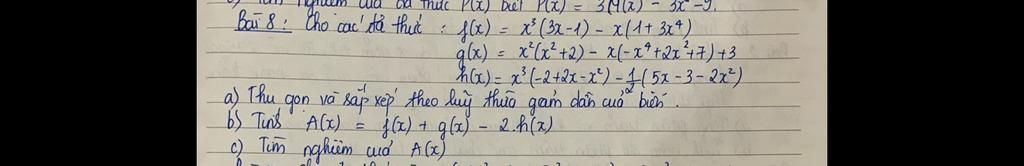 nghiệm của đa thức P(x) biết P(x) = 3M(x) - 3x² - 9.
Bài 8: Cho các đa thức : f(x) = x³(3x-1) - x(1+3x⁴)
g(x) = x²(x²+2) - x(-x⁴+2x²+7)+3
h(x) = x³(-2+2x-x²) - 1/2(5x-3-2x²)
a) Thu gọn và sắp xếp theo luỹ thừa giảm dần của biến.
b) Tính A(x) = f(x) + g(x) - 2.h(x)
c) Tìm nghiệm của A(x)